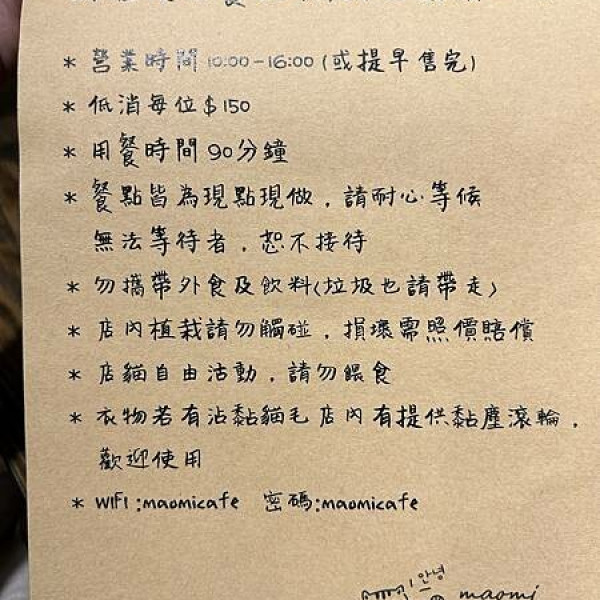 * 營業時間 10:00-16:00 (或提早售完)
* 低消每位$150
* 用餐時間 90分鐘
* 餐點皆為現點現做，請耐心等候
無法等待者，恕不接待
* 勿攜帶外食及飲料(垃圾也請帶走)
* 店內植栽請勿觸碰，損壞需照價賠償
* 店貓自由活動，請勿餵食
* 衣物若有沾黏貓毛店內有提供黏塵滾輪，
歡迎使用
* WIFI:maomicafe 密碼:maomicafe
안녕
maomi